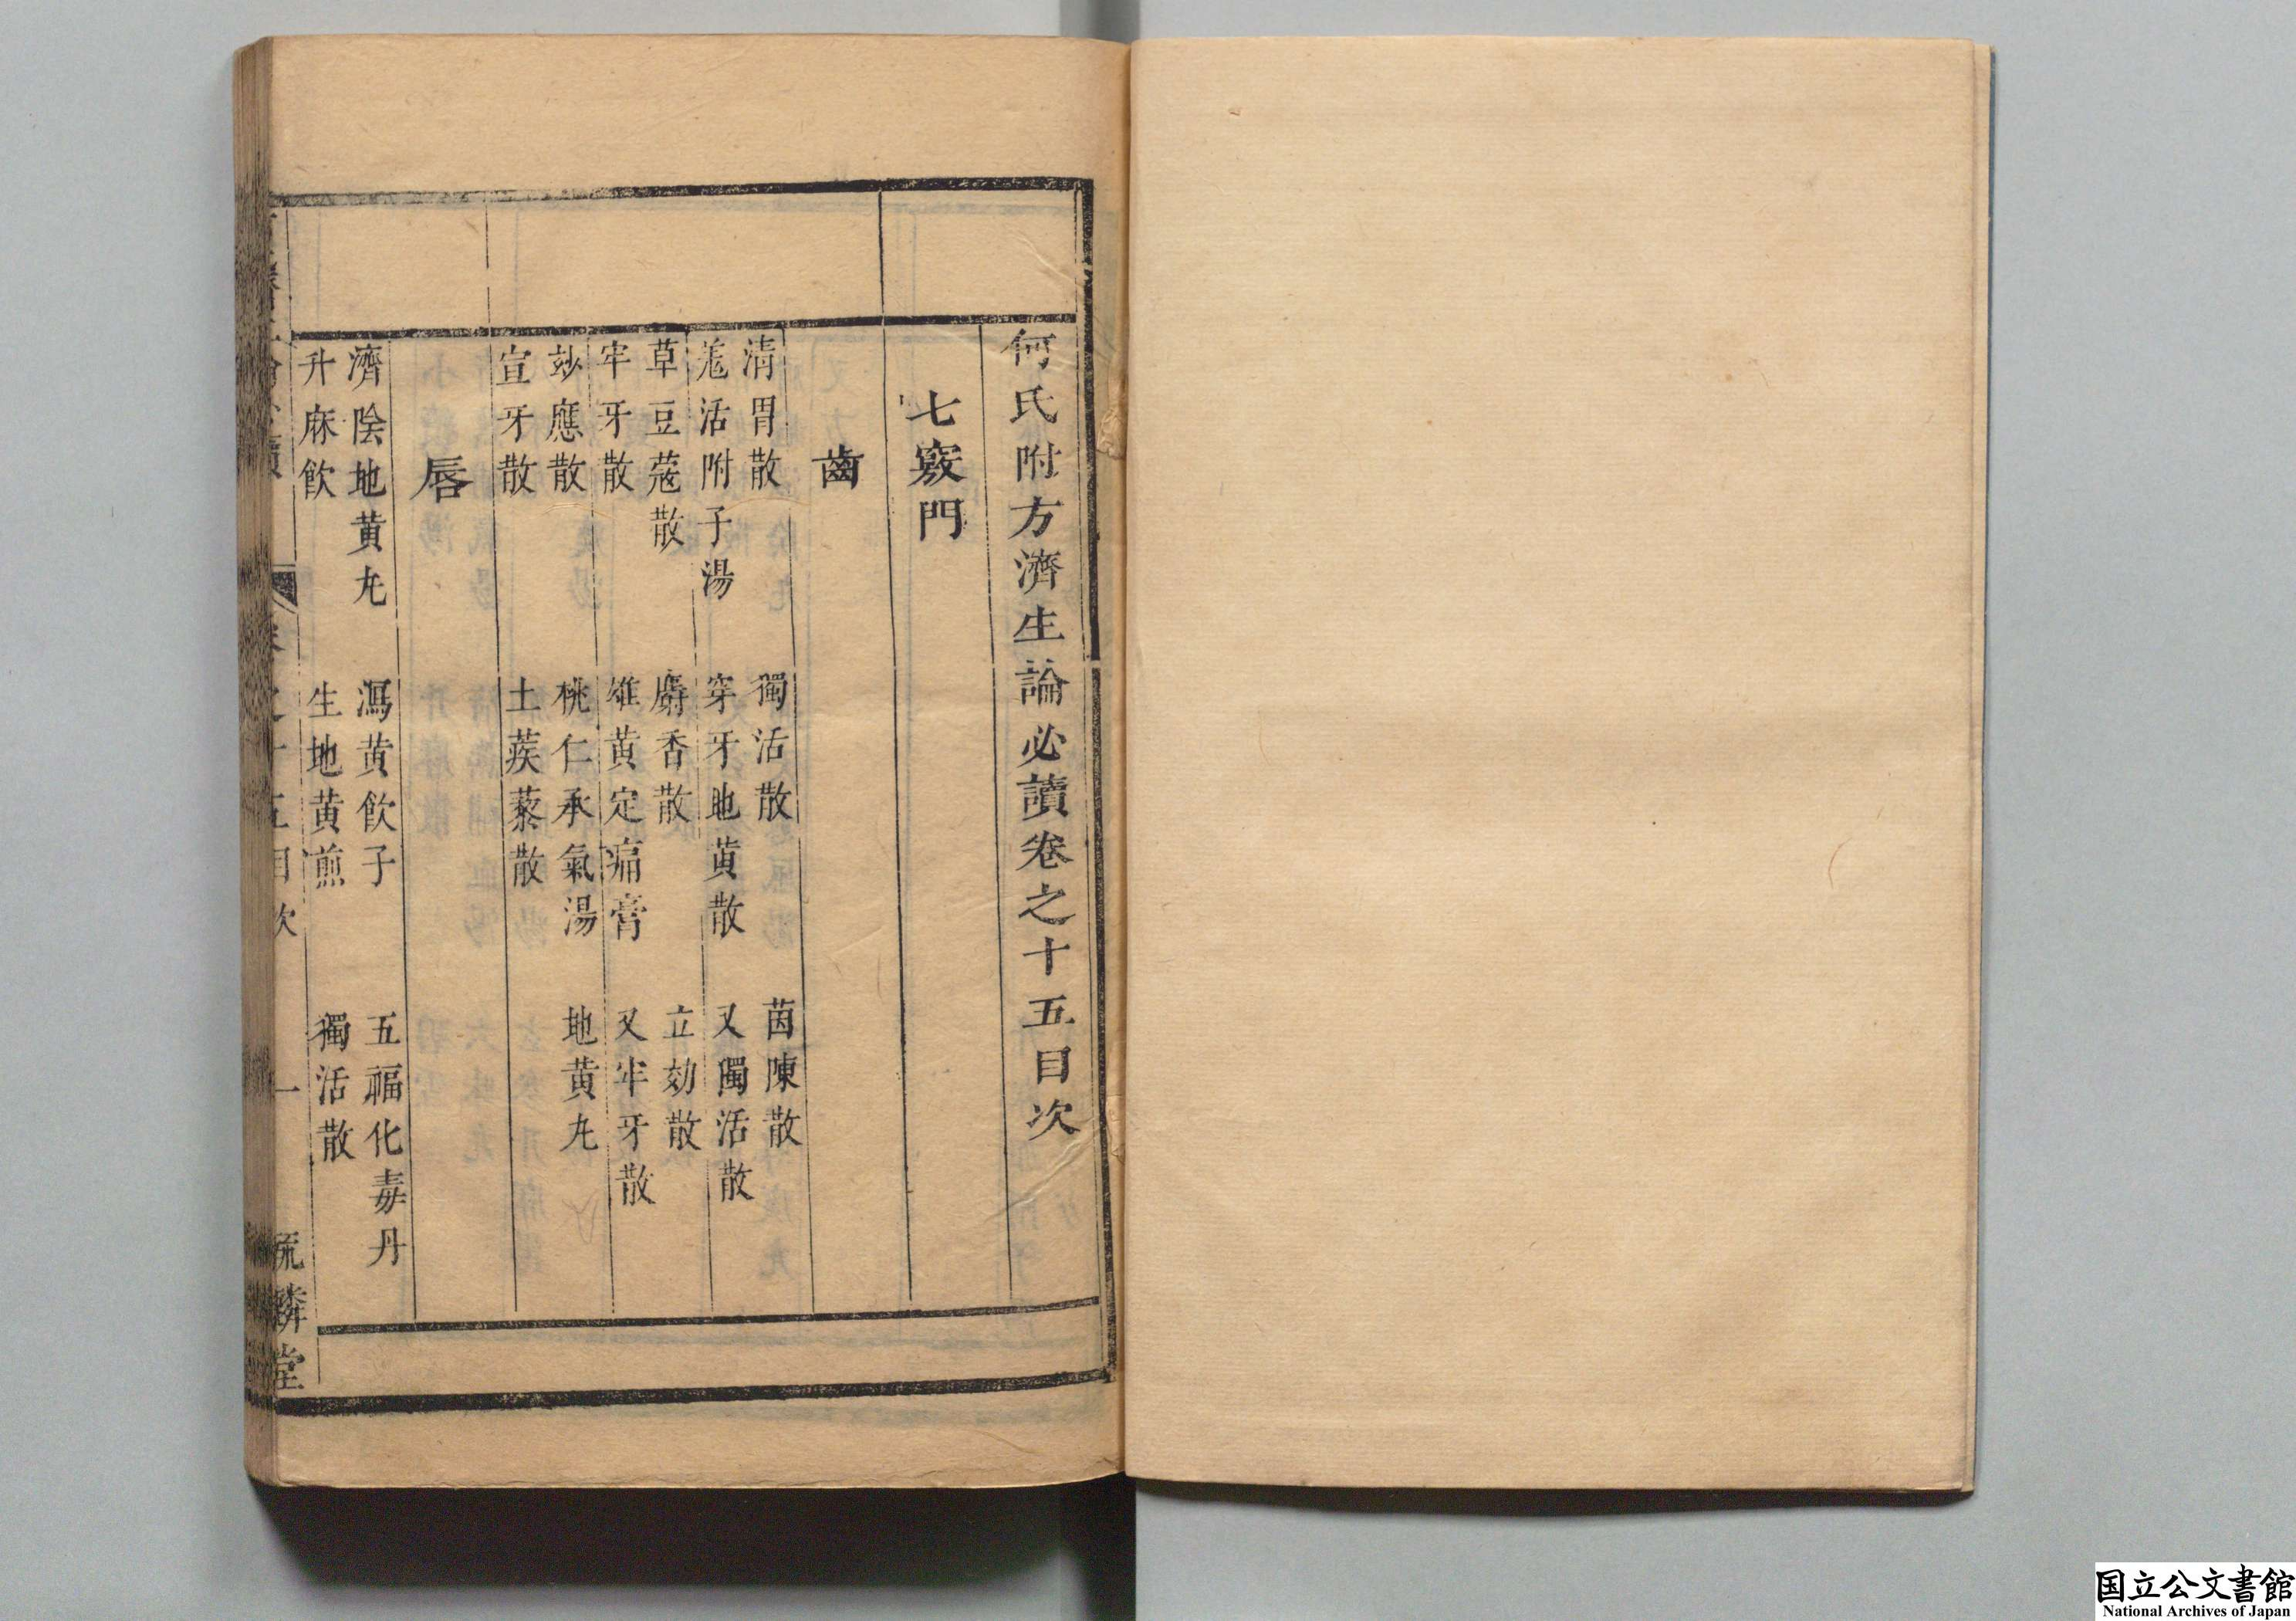 何氏附方濟生論必讀卷之十五目次
七竅門
齒
清胃散　獨活散　茵陳散
羗活附子湯　穿牙地黄散　又獨活散
草豆蔻散　麝香散　立効散
牢牙散　雄黄定痛膏　又牢牙散
玅應散　桃仁承氣湯　地黄丸
宣牙散　土蒺藜散
唇
濟隂地黄丸　瀉黄飲子　五福化毒丹
升麻飲　生地黄煎　獨活散
目次　一
毓麟堂
国立公文書館
National Archives of Japan